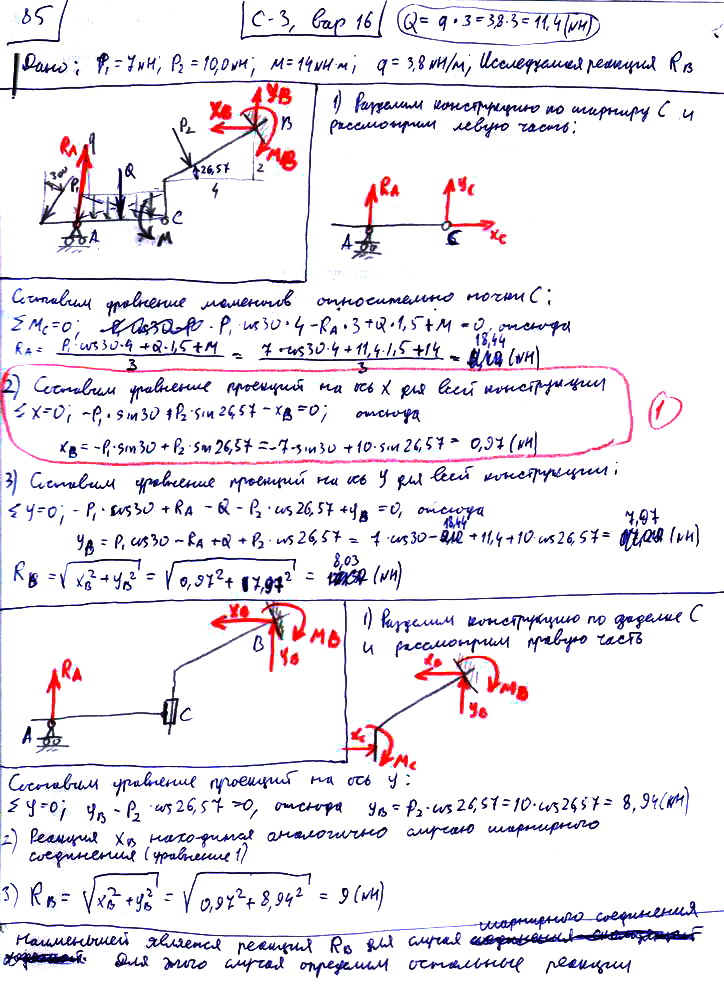 85
С-3, вар 16
Q = q·3 = 3,8·3 = 11,4 (кН)
Дано: P₁ = 7 кН; P₂ = 10,0 кН; M = 14 кН·м; q = 3,8 кН/м; Исследуемая реакция R_B
R_A
q
30°
P₁
Q
P₂
X_B
Y_B
B
M_B
26,57
2
4
A
C
M
1) Разделим конструкцию по шарниру С и
рассмотрим левую часть:
R_A
Y_C
A
C
X_C
Составим уравнение моментов относительно точки С:
ΣM_C=0; P₁·cos30·4 − R_A·3 + Q·1,5 + M = 0, отсюда
R_A = (P₁·cos30·4 + Q·1,5 + M)/3 = (7·cos30·4 + 11,4·1,5 + 14)/3 = 18,44 (кН)
2) Составим уравнение проекций на ось X для всей конструкции
ΣX=0; −P₁·sin30 + P₂·sin26,57 − X_B = 0; отсюда
X_B = −P₁·sin30 + P₂·sin26,57 = −7·sin30 + 10·sin26,57 = 0,97 (кН)
1
3) Составим уравнение проекций на ось Y для всей конструкции:
ΣY=0; −P₁·cos30 + R_A − Q − P₂·cos26,57 + Y_B = 0, отсюда
Y_B = P₁cos30 − R_A + Q + P₂·cos26,57 = 7·cos30 − 18,44 + 11,4 + 10·cos26,57 = 7,97 (кН)
R_B = √(X_B² + Y_B²) = √(0,97² + 7,97²) = 8,03 (кН)
R_A
A
C
X_B
B
M_B
Y_B
1) Разделим конструкцию по заделке С
и рассмотрим правую часть
X_B
M_B
Y_B
X_C
M_C
Составим уравнение проекций на ось Y:
ΣY=0; Y_B − P₂·cos26,57 = 0, отсюда Y_B = P₂·cos26,57 = 10·cos26,57 = 8,94 (кН)
2) Реакция X_B находится аналогично случаю шарнирного
соединения (уравнение 1)
3) R_B = √(X_B² + Y_B²) = √(0,97² + 8,94²) = 9 (кН)
Наименьшей является реакция R_B для случая шарнирного соединения
Для этого случая определим остальные реакции